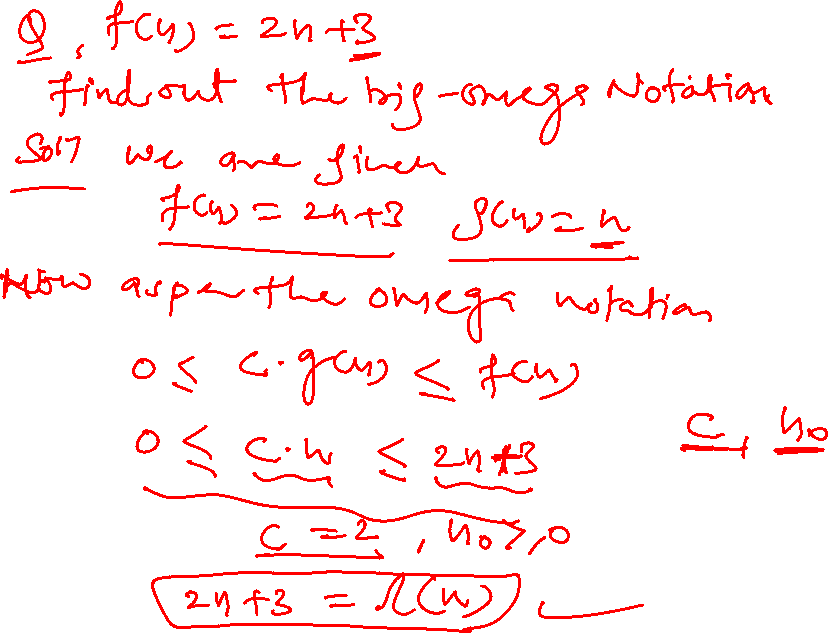 Q, f(n) = 2n+3
find out the big-omega Notation
Sol7 we are given
f(n) = 2n+3 g(n) = n
Now as per the omega notation
0 ≤ c.g(n) ≤ f(n)
0 ≤ c.n ≤ 2n+3 c, n₀
c = 2, n₀ ≥ 0
2n+3 = Ω(n)